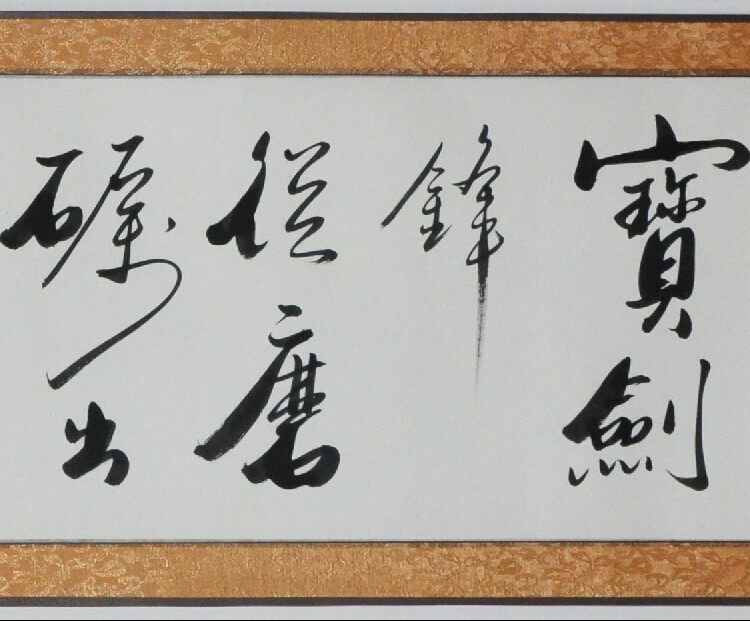 寶劍
鋒
從磨
礪出